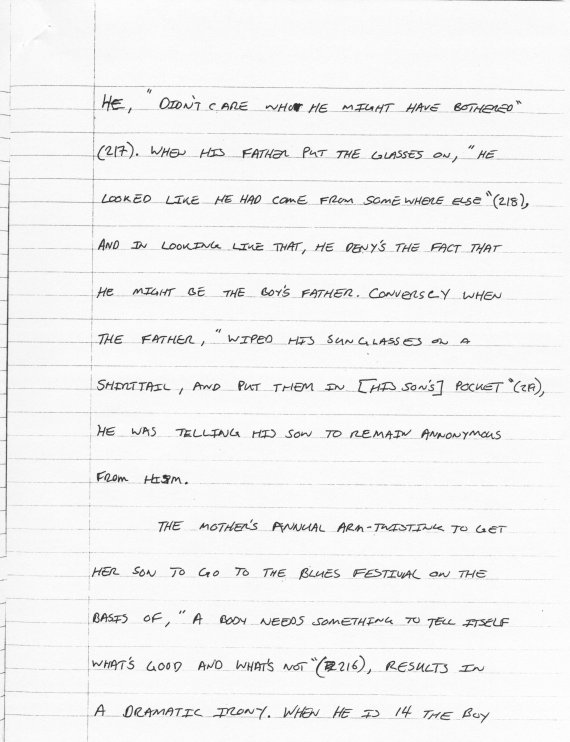 HE, "DIDN'T CARE WHO HE MIGHT HAVE BOTHERED"
(217). WHEN HIS FATHER PUT THE GLASSES ON, "HE
LOOKED LIKE HE HAD COME FROM SOMEWHERE ELSE"(218),
AND IN LOOKING LIKE THAT, HE DENY'S THE FACT THAT
HE MIGHT BE THE BOY'S FATHER. CONVERSLY WHEN
THE FATHER, "WIPED HIS SUNGLASSES ON A
SHIRTTAIL, AND PUT THEM IN [HIS SON'S] POCKET"(219),
HE WAS TELLING HIS SON TO REMAIN ANNONYMOUS
FROM HIM.
THE MOTHER'S ANNUAL ARM-TWISTING TO GET
HER SON TO GO TO THE BLUES FESTIVAL ON THE
BASIS OF, "A BODY NEEDS SOMETHING TO TELL ITSELF
WHAT'S GOOD AND WHAT'S NOT"(216), RESULTS IN
A DRAMATIC IRONY. WHEN HE IS 14 THE BOY